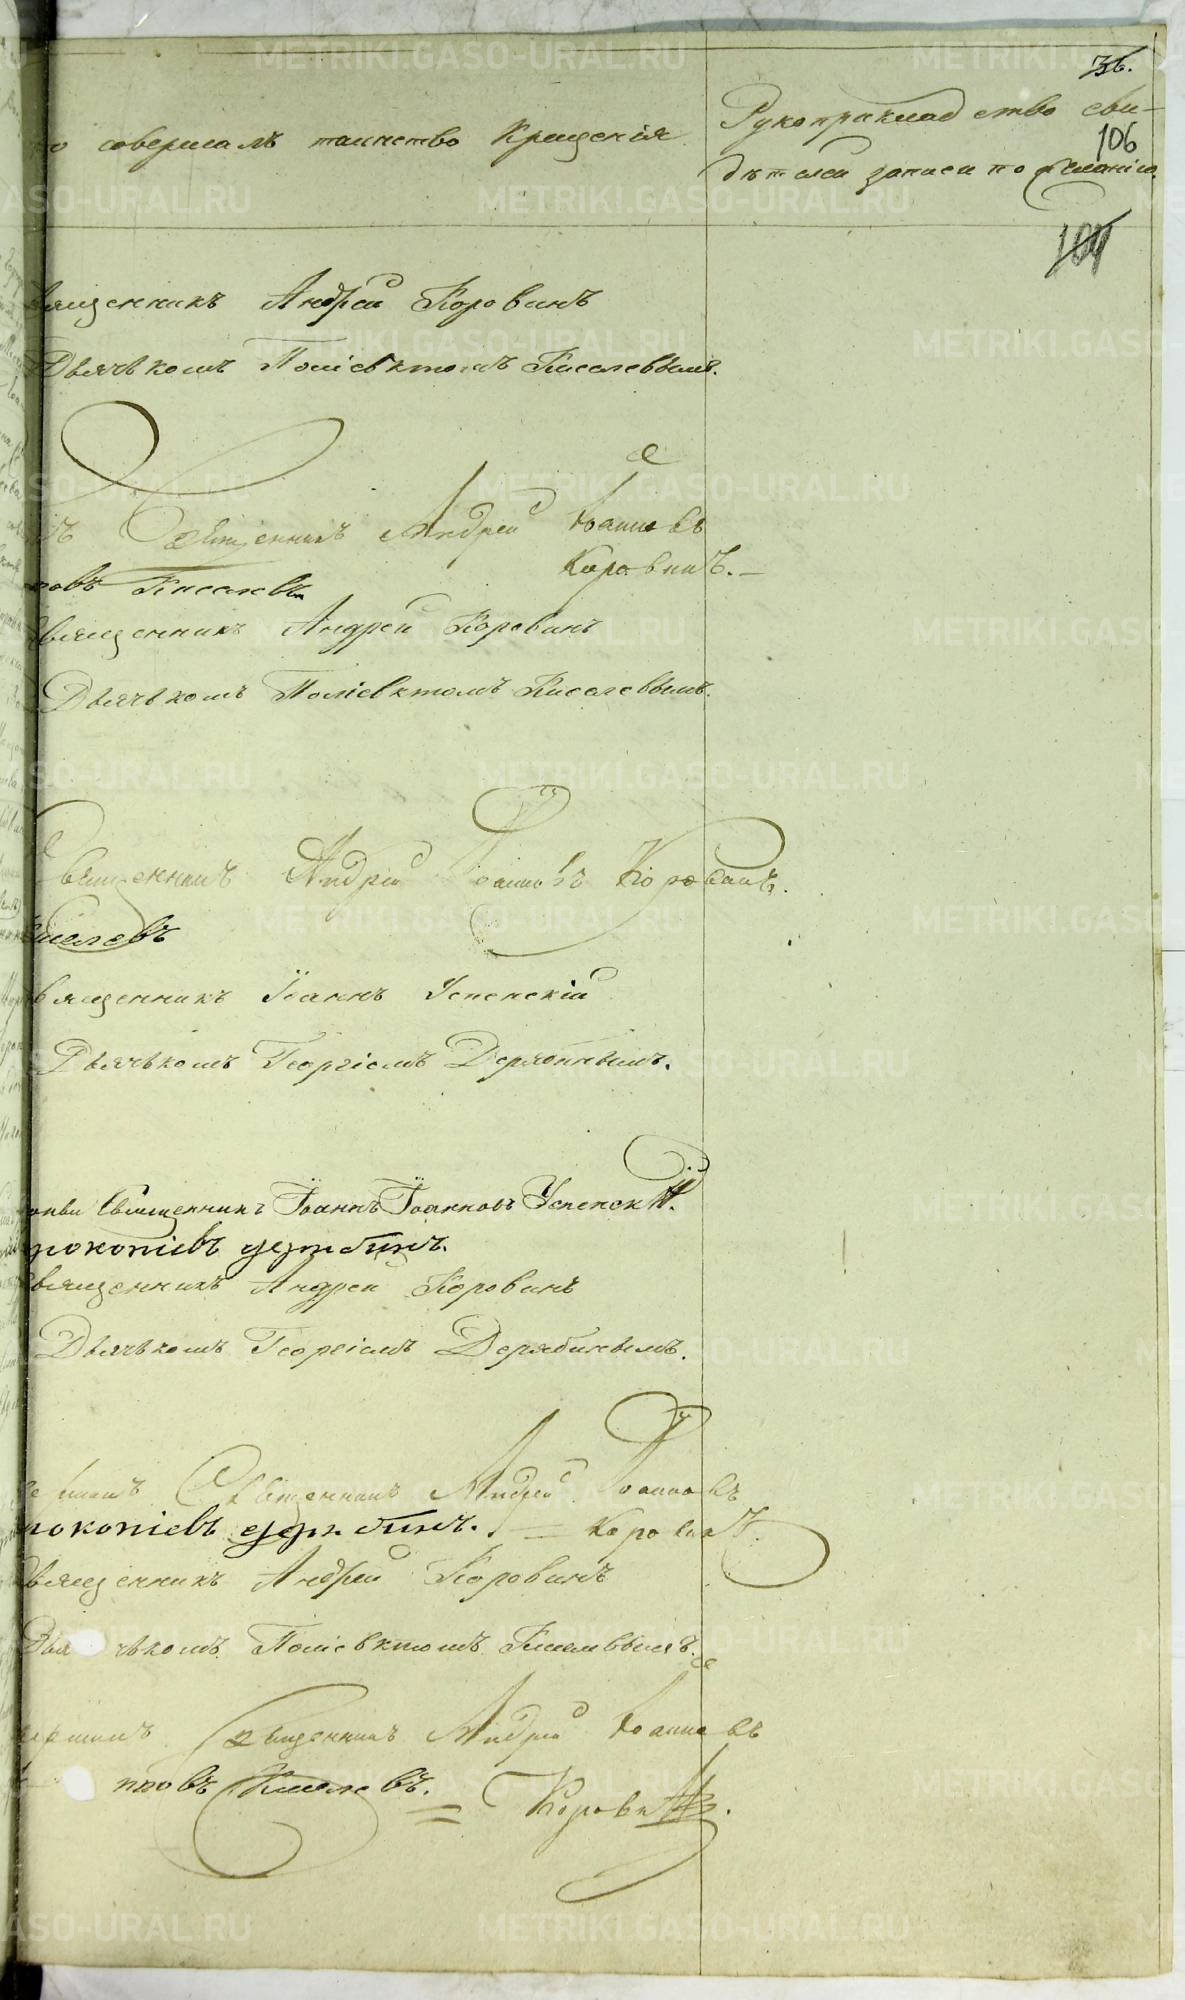 36.
совершалъ таинство Крещенія
Рукоприкладство сви-
106
дѣтелей записи по желанію.
104
Священникъ Андрей Коровинъ
Дьячькомъ Поліевктомъ Киселевымъ.
Священникъ Андрей Іоанновъ
Коровинъ.—
ковъ Киселевъ
Священникъ Андрей Коровинъ
Дьячькомъ Поліевктомъ Киселевымъ.
Священникъ Андрей Іоанновъ Коровинъ.
Киселевъ
Священникъ Іоаннъ Успенскій
Дьячькомъ Георгіемъ Дерябинымъ.
Священникъ Іоаннъ Іоанновъ Успенскій.
прокопіевъ дерябинъ.
Священникъ Андрей Коровинъ
Дьячькомъ Георгіемъ Дерябинымъ.
Священникъ Андрей Іоанновъ
прокопіевъ дерябинъ. = Коровинъ.
Священникъ Андрей Коровинъ
Дьячькомъ Поліевктомъ Киселевымъ.
Священникъ Андрей Іоанновъ
Киселевъ. = Коровинъ.
METRIKI.GASO-URAL.RU